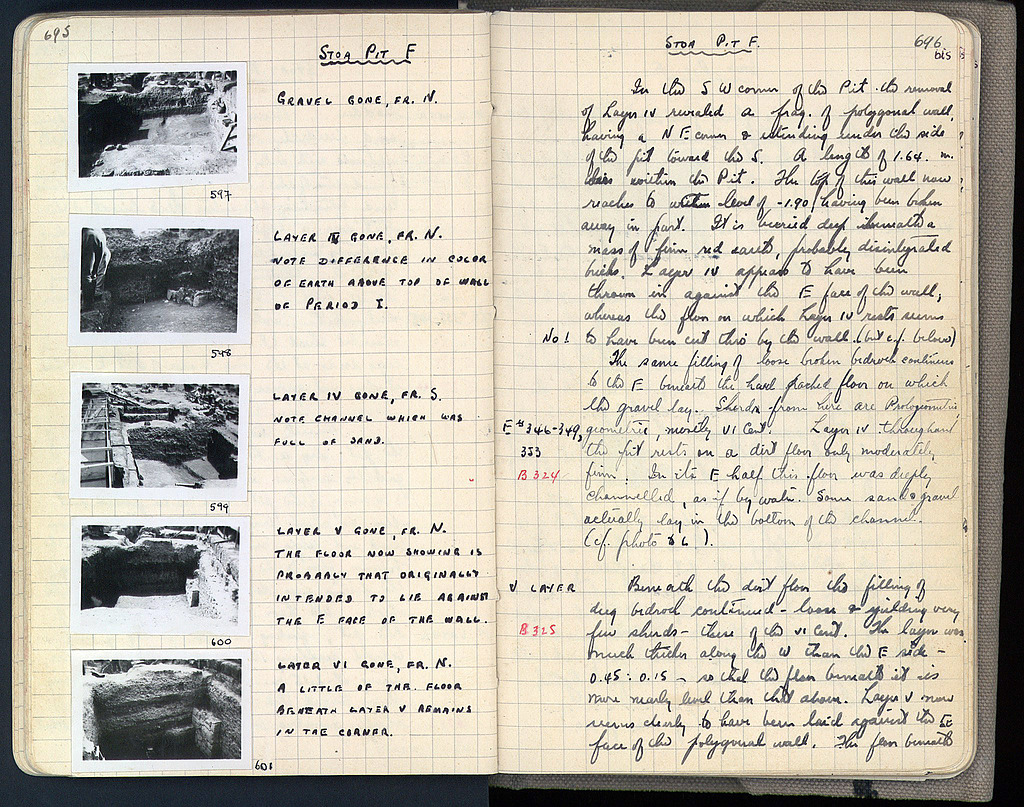 695
STOA PIT F
GRAVEL GONE, FR. N.
597
LAYER III GONE, FR. N.
NOTE DIFFERENCE IN COLOR
OF EARTH ABOVE TOP OF WALL
OF PERIOD I.
548
LAYER IV GONE, FR. S.
NOTE CHANNEL WHICH WAS
FULL OF SAND.
599
LAYER V GONE, FR. N.
THE FLOOR NOW SHOWING IS
PROBABLY THAT ORIGINALLY
INTENDED TO LIE AGAINST
THE E FACE OF THE WALL.
600
LAYER VI GONE, FR. N.
A LITTLE OF THE FLOOR
BENEATH LAYER V REMAINS
IN THE CORNER.
601
STOA PIT F.
696
bis
In the S W corner of the Pit the removal
of Layer IV revealed a frag. of polygonal wall,
having a N E corner & extending under the side
of the pit toward the S. A length of 1.64. m.
lies within the Pit. The top of this wall now
reaches to level of -1.90, having been broken
away in part. It is buried deep beneath a
mass of firm red earth, probably disintegrated
bricks. Layer IV appears to have been
thrown in against the E face of the wall,
whereas the floor on which Layer IV rests seems
No! to have been cut thro by the wall. (but cf. below)
The same filling of loose broken bedrock continues
to the E beneath the hard packed floor on which
the gravel lay. Sherds from here are Protogeometric
E # 346-349, geometric, mostly VI Cent. Layer IV throughout
353 the pit rests on a dirt floor only moderately
B 324 firm. In its E half this floor was deeply
channelled, as if by water. Some sand & gravel
actually lay in the bottom of the channel.
(cf. photo ).
V LAYER Beneath the dirt floor the filling of
dug bedrock continued - loose & yielding very
B 325 few sherds - these of the VI Cent. The layer was
much thicker along the W than the E side -
0.45 : 0.15 - so that the floor beneath it is
more nearly level than that above. Layer V now
seems clearly to have been laid against the E
face of the polygonal wall. The floor beneath